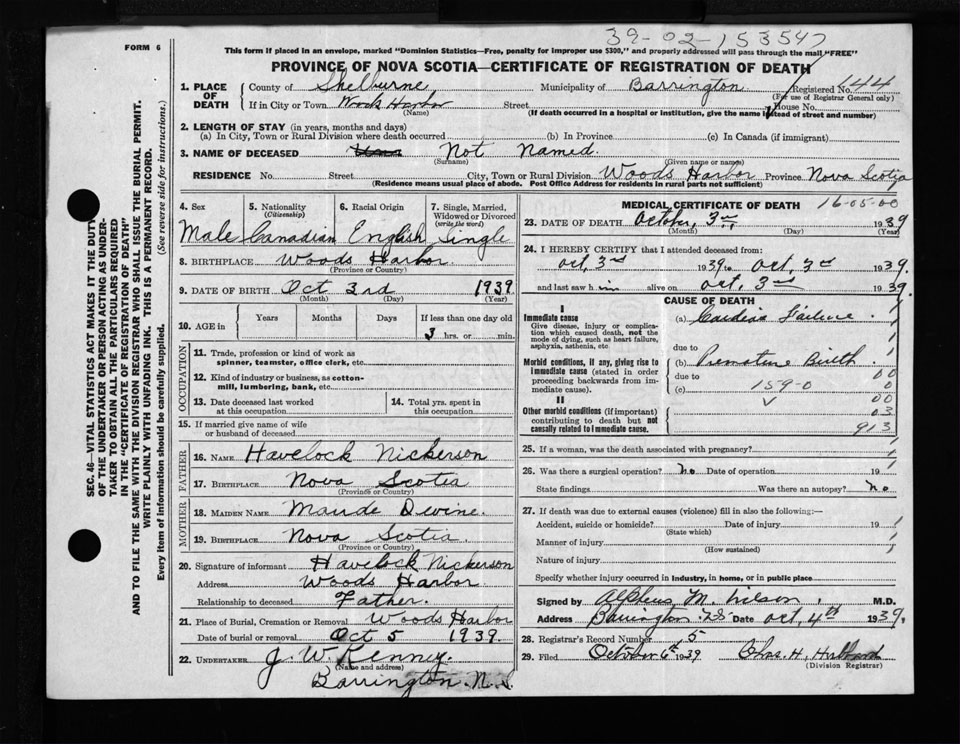 39-02-153547
FORM 6
This form if placed in an envelope, marked "Dominion Statistics—Free, penalty for improper use $300," and properly addressed will pass through the mail "FREE"
PROVINCE OF NOVA SCOTIA—CERTIFICATE OF REGISTRATION OF DEATH
1. PLACE OF DEATH County of Shelburne, Municipality of Barrington Registered No. 144
(For use of Registrar General only)
If in City or Town Woods Harbor Street House No.
(Name) (If death occurred in a hospital or institution, give the name instead of street and number)
2. LENGTH OF STAY (in years, months and days)
(a) In City, Town or Rural Division where death occurred (b) In Province (c) In Canada (if immigrant)
3. NAME OF DECEASED Not Named.
(Surname) (Given name or names)
RESIDENCE No. Street City, Town or Rural Division Woods Harbor Province Nova Scotia
(Residence means usual place of abode. Post Office Address for residents in rural parts not sufficient)
4. Sex 5. Nationality (Citizenship) 6. Racial Origin 7. Single, Married, Widowed or Divorced (write the word)
Male Canadian English Single
8. BIRTHPLACE Woods Harbor
(Province or Country)
9. DATE OF BIRTH Oct 3rd 1939
(Month) (Day) (Year)
10. AGE in Years Months Days If less than one day old
3 hrs. or min.
OCCUPATION
11. Trade, profession or kind of work as spinner, teamster, office clerk, etc.
12. Kind of industry or business, as cotton-mill, lumbering, bank, etc.
13. Date deceased last worked at this occupation 14. Total yrs. spent in this occupation
15. If married give name of wife or husband of deceased
FATHER
16. NAME Havelock Nickerson
17. BIRTHPLACE Nova Scotia
(Province or Country)
MOTHER
18. MAIDEN NAME Maude Devine.
19. BIRTHPLACE Nova Scotia
(Province or Country)
20. Signature of informant Havelock Nickerson
Address Woods Harbor
Relationship to deceased Father.
21. Place of Burial, Cremation or Removal Woods Harbor
Date of burial or removal Oct 5 1939.
22. UNDERTAKER J. W. Kenney.
(Name and address)
Barrington. N.S.
MEDICAL CERTIFICATE OF DEATH 16-05-00
23. DATE OF DEATH October, 3rd, 1939
(Month) (Day) (Year)
24. I HEREBY CERTIFY that I attended deceased from:
Oct, 3rd 1939 to Oct, 3rd 1939.
and last saw him alive on Oct, 3rd 1939.
CAUSE OF DEATH
I
Immediate cause (a) Cardiac Failure.
Give disease, injury or complication which caused death, not the mode of dying, such as heart failure, asphyxia, asthenia, etc.
due to
Morbid conditions, if any, giving rise to immediate cause (stated in order proceeding backwards from immediate cause). (b) Premature Birth.
due to 00
(c) 159-0 0
II 00
Other morbid conditions (if important) contributing to death but not causally related to immediate cause. 03
913
25. If a woman, was the death associated with pregnancy?
26. Was there surgical operation? No Date of operation 19
State findings Was there an autopsy? No
27. If death was due to external causes (violence) fill in also the following:—
Accident, suicide or homicide? Date of injury 19
(State which)
Manner of injury
(How sustained)
Nature of injury
Specify whether injury occurred in industry, in home, or in public place
Signed by Alpheus M. Wilson. M.D.
Address Barrington N.S. Date Oct, 4th 1939.
28. Registrar's Record Number 5
29. Filed October 6th 1939 Chas. H.
(Division Registrar)
SEC. 46—VITAL STATISTICS ACT MAKES IT THE DUTY
OF THE UNDERTAKER OR PERSON ACTING AS UNDER-
TAKER TO OBTAIN ALL THE PARTICULARS REQUIRED
IN THE "CERTIFICATE OF REGISTRATION OF DEATH"
AND TO FILE THE SAME WITH THE DIVISION REGISTRAR WHO SHALL ISSUE THE BURIAL PERMIT.
WRITE PLAINLY WITH UNFADING INK. THIS IS A PERMANENT RECORD.
Every item of information should be carefully supplied. (See reverse side for instructions.)